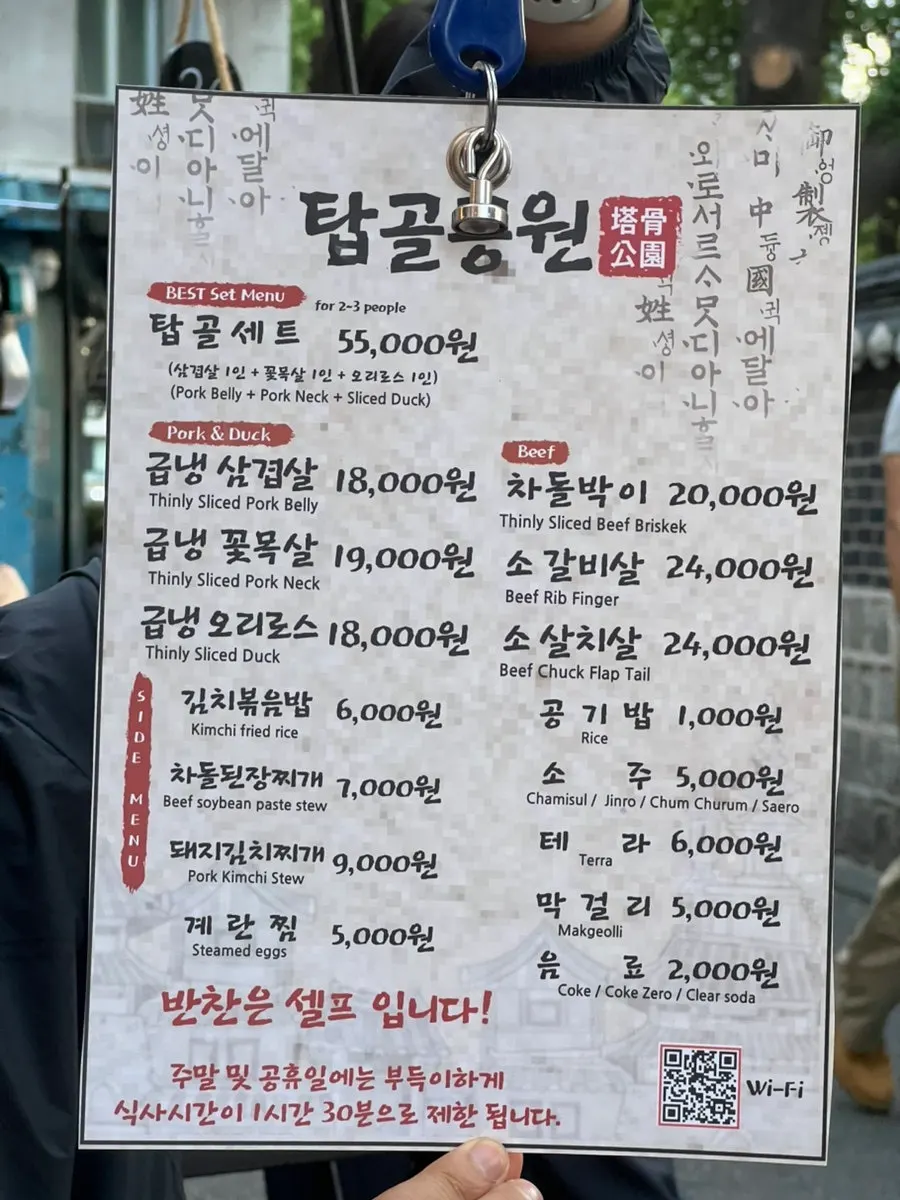 탑골공원
塔骨
公園
BEST Set Menu for 2-3 people
탑골세트 55,000원
(삼겹살 1인 + 꽃목살 1인 + 오리로스 1인)
(Pork Belly + Pork Neck + Sliced Duck)
Pork & Duck
급냉 삼겹살 18,000원
Thinly Sliced Pork Belly
급냉 꽃목살 19,000원
Thinly Sliced Pork Neck
급냉 오리로스 18,000원
Thinly Sliced Duck
Beef
차돌박이 20,000원
Thinly Sliced Beef Briskek
소 갈비살 24,000원
Beef Rib Finger
소 살치살 24,000원
Beef Chuck Flap Tail
SIDE MENU
김치볶음밥 6,000원
Kimchi fried rice
차돌된장찌개 7,000원
Beef soybean paste stew
돼지김치찌개 9,000원
Pork Kimchi Stew
계란찜 5,000원
Steamed eggs
공기밥 1,000원
Rice
소주 5,000원
Chamisul / Jinro / Chum Churum / Saero
테라 6,000원
Terra
막걸리 5,000원
Makgeolli
음료 2,000원
Coke / Coke Zero / Clear soda
반찬은 셀프 입니다!
주말 및 공휴일에는 부득이하게
식사시간이 1시간 30분으로 제한 됩니다.
Wi-Fi